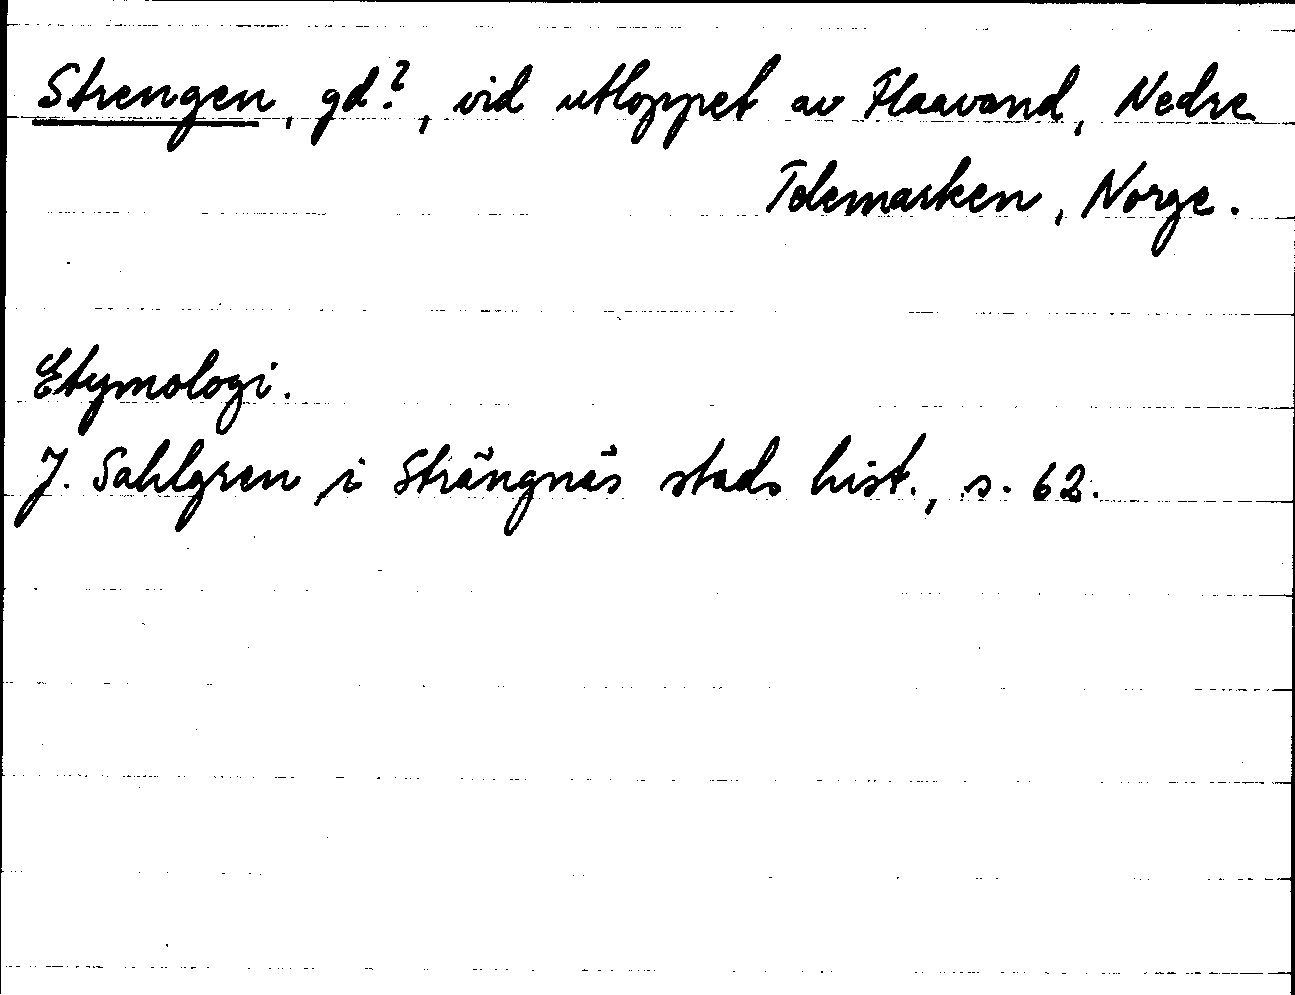 Strengen, gd?, vid utloppet av Flaavand, Nedre
Telemarken, Norge.
Etymologi.
J. Sahlgren i Strängnäs stads hist., s. 62.